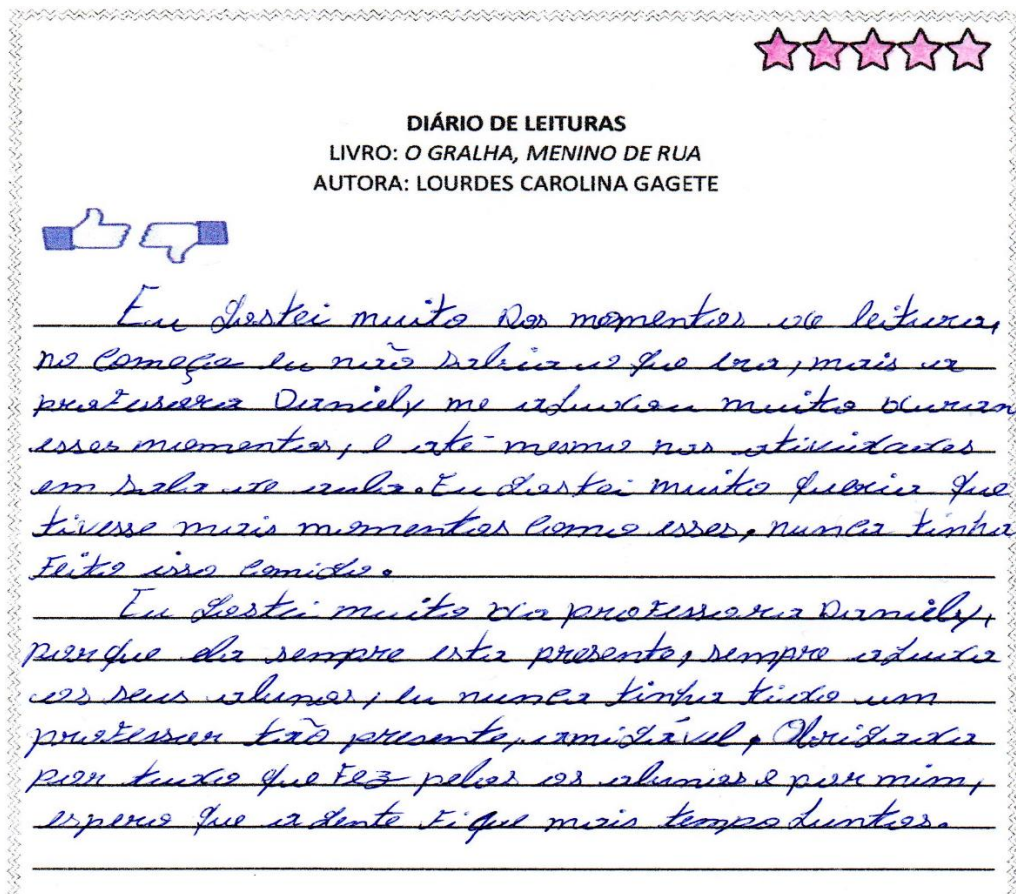 DIÁRIO DE LEITURAS
LIVRO: O GRALHA, MENINO DE RUA
AUTORA: LOURDES CAROLINA GAGETE
Eu gostei muito dos momentos de leitura,
no começo eu não sabia o que era, mais a
professora Daniely me ajudou muito duran
esses momentos, e até mesmo nas atividades
em sala de aula. Eu gostei muito queria que
tivesse mais momentos como esses, nunca tinha
feito isso comigo.
Eu gostei muito da professora Daniely,
porque ela sempre esta presente, sempre ajuda
os seus alunos, eu nunca tinha tido um
professor tão presente, amigável, Obrigada
por tudo que fez pelos os alunos e por mim,
espero que a gente fique mais tempo juntos.